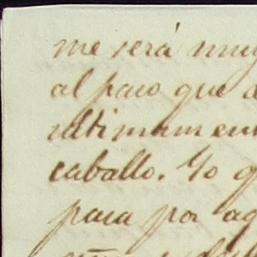 me será muy
al paso que
ultimamen
caballo. Yo q
para por ag